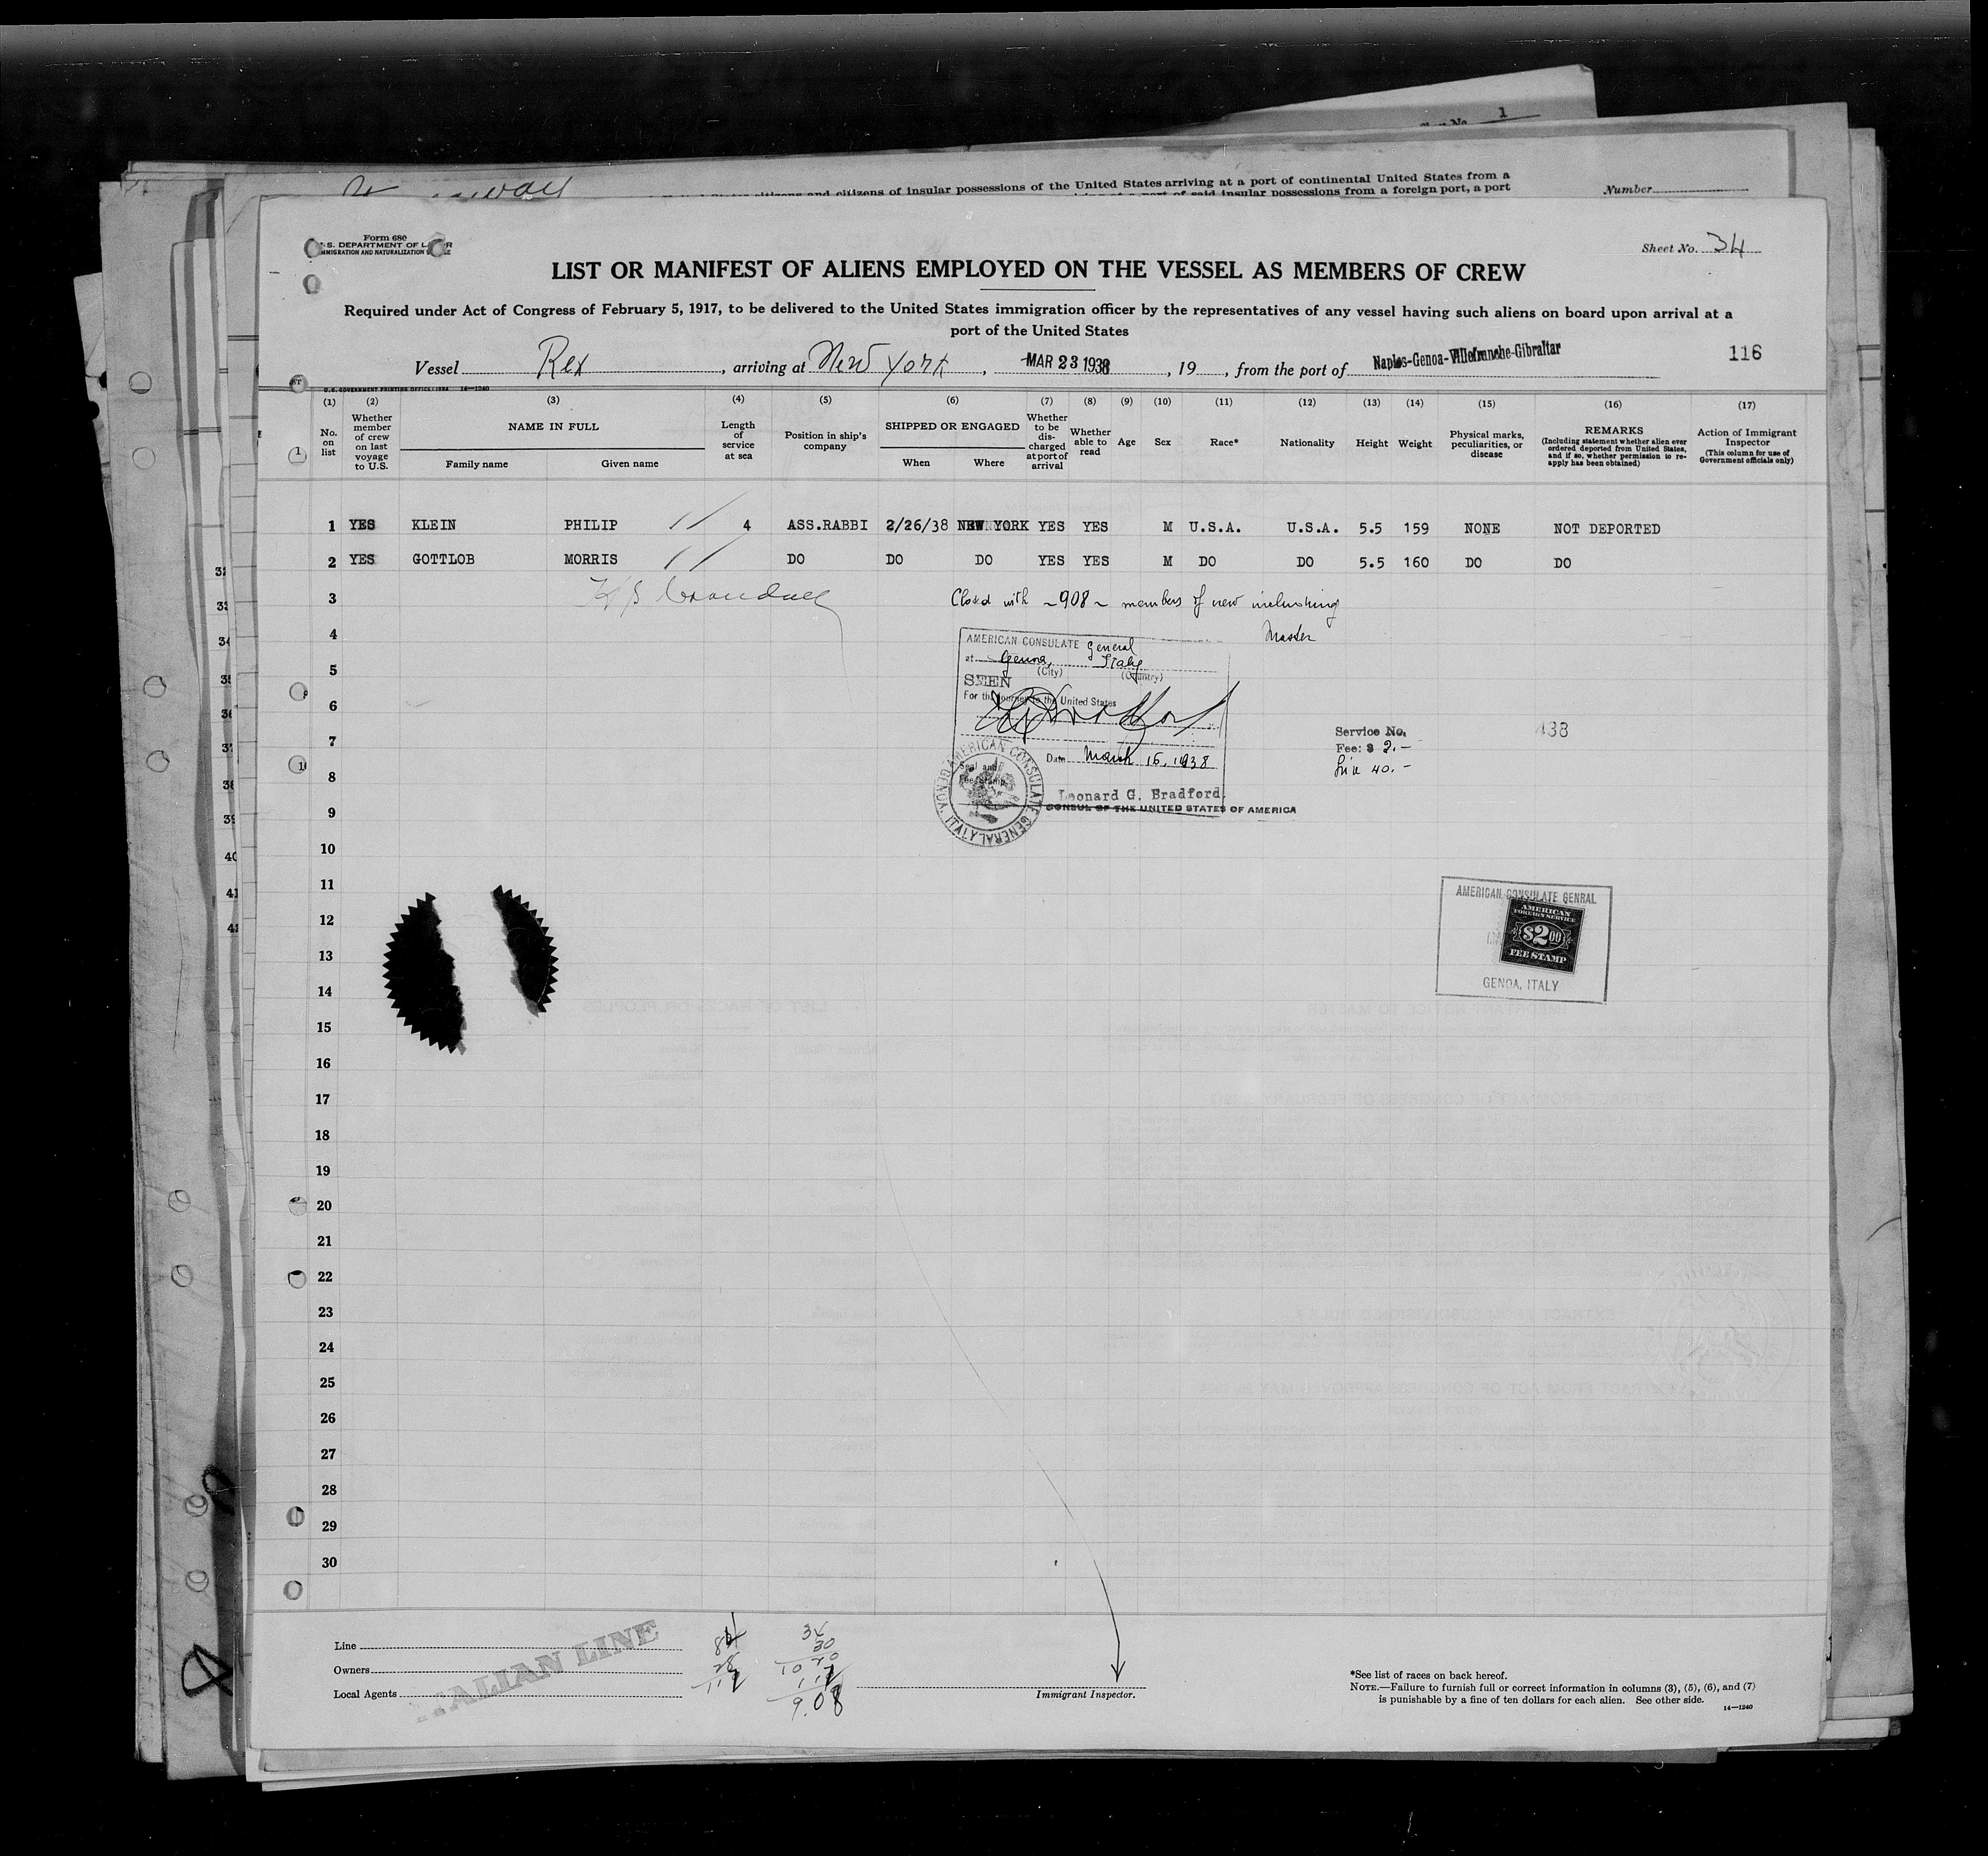 1
citizens and citizens of insular possessions of the United States arriving at a port of continental United States from a
Number
said insular possessions from a foreign port, a port
Form 680
U.S. DEPARTMENT OF LABOR
IMMIGRATION AND NATURALIZATION SERVICE
Sheet No. 34
LIST OR MANIFEST OF ALIENS EMPLOYED ON THE VESSEL AS MEMBERS OF CREW
Required under Act of Congress of February 5, 1917, to be delivered to the United States immigration officer by the representatives of any vessel having such aliens on board upon arrival at a
port of the United States
Vessel Rex, arriving at New York, MAR 23 1938, 19, from the port of Naples-Genoa-Villefranche-Gibraltar 116
U.S. GOVERNMENT PRINTING OFFICE: 1934 14—1240
(1) (2) (3) (4) (5) (6) (7) (8) (9) (10) (11) (12) (13) (14) (15) (16) (17)
No. on list
Whether member of crew on last voyage to U.S.
NAME IN FULL
Family name Given name
Length of service at sea
Position in ship's company
SHIPPED OR ENGAGED
When Where
Whether to be discharged at port of arrival
Whether able to read
Age
Sex
Race*
Nationality
Height
Weight
Physical marks, peculiarities, or disease
REMARKS
(Including statement whether alien ever ordered deported from United States, and if so, whether permission to reapply has been obtained)
Action of Immigrant Inspector
(This column for use of Government officials only)
1 YES KLEIN PHILIP 4 ASS.RABBI 2/26/38 NEW YORK YES YES M U.S.A. U.S.A. 5.5 159 NONE NOT DEPORTED
2 YES GOTTLOB MORRIS DO DO DO YES YES M DO DO 5.5 160 DO DO
3 Closed with ~908~ members of crew including
4 Master
AMERICAN CONSULATE General
at Genoa, Italy
(City) (Country)
5
SEEN
For the journey to the United States
6
7
Service No. 438
Fee: $ 2.—
Date March 15, 1938
Lire 40.—
8
Seal and
Fee Stamp
AMERICAN CONSULATE GENERAL
GENOA, ITALY
Leonard G. Bradford
CONSUL OF THE UNITED STATES OF AMERICA
9
10
11
AMERICAN CONSULATE GENRAL
AMERICAN
FOREIGN SERVICE
$2.00
FEE STAMP
GENOA, ITALY
12
13
14
15
16
17
18
19
20
21
22
23
24
25
26
27
28
29
30
Line
Owners
Local Agents
ITALIAN LINE
30
1020
112
908
Immigrant Inspector.
*See list of races on back hereof.
NOTE.—Failure to furnish full or correct information in columns (3), (5), (6), and (7)
is punishable by a fine of ten dollars for each alien. See other side.
14—1240